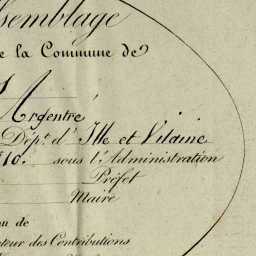 semblage
e la Commune de
Argentré
Dépt. d' Ille et Vilaine
sous l'Administration
Préfet
Maire
au de
teur des Contributions